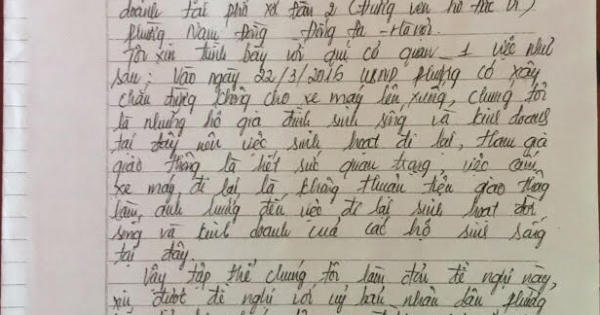 doanh tại phố xã đàn 2 (Đường ven hồ
phường Nam Đồng _ Đống Đa - Hà nội.
Tôi xin trình bày với quí cơ quan 1 việc như
sau: Vào ngày 22/3/2016 UBND phường có xây
chắn đường không cho xe máy lên, xuống, chúng tôi
là những hộ gia đình sinh sống và kinh doanh
tại đây nên việc sinh hoạt đi lại, tham gia
giao thông là hết sức quan trọng. việc cấm
xe máy đi lại, là không thuận tiện giao thông
làm ảnh hưởng đến việc đi lại sinh hoạt đời
sống và kinh doanh của các hộ sinh sống
tại đây.
Vậy tập thể chúng tôi làm đơn đề nghị này,
xin được đề nghị với uỷ ban nhân dân phường